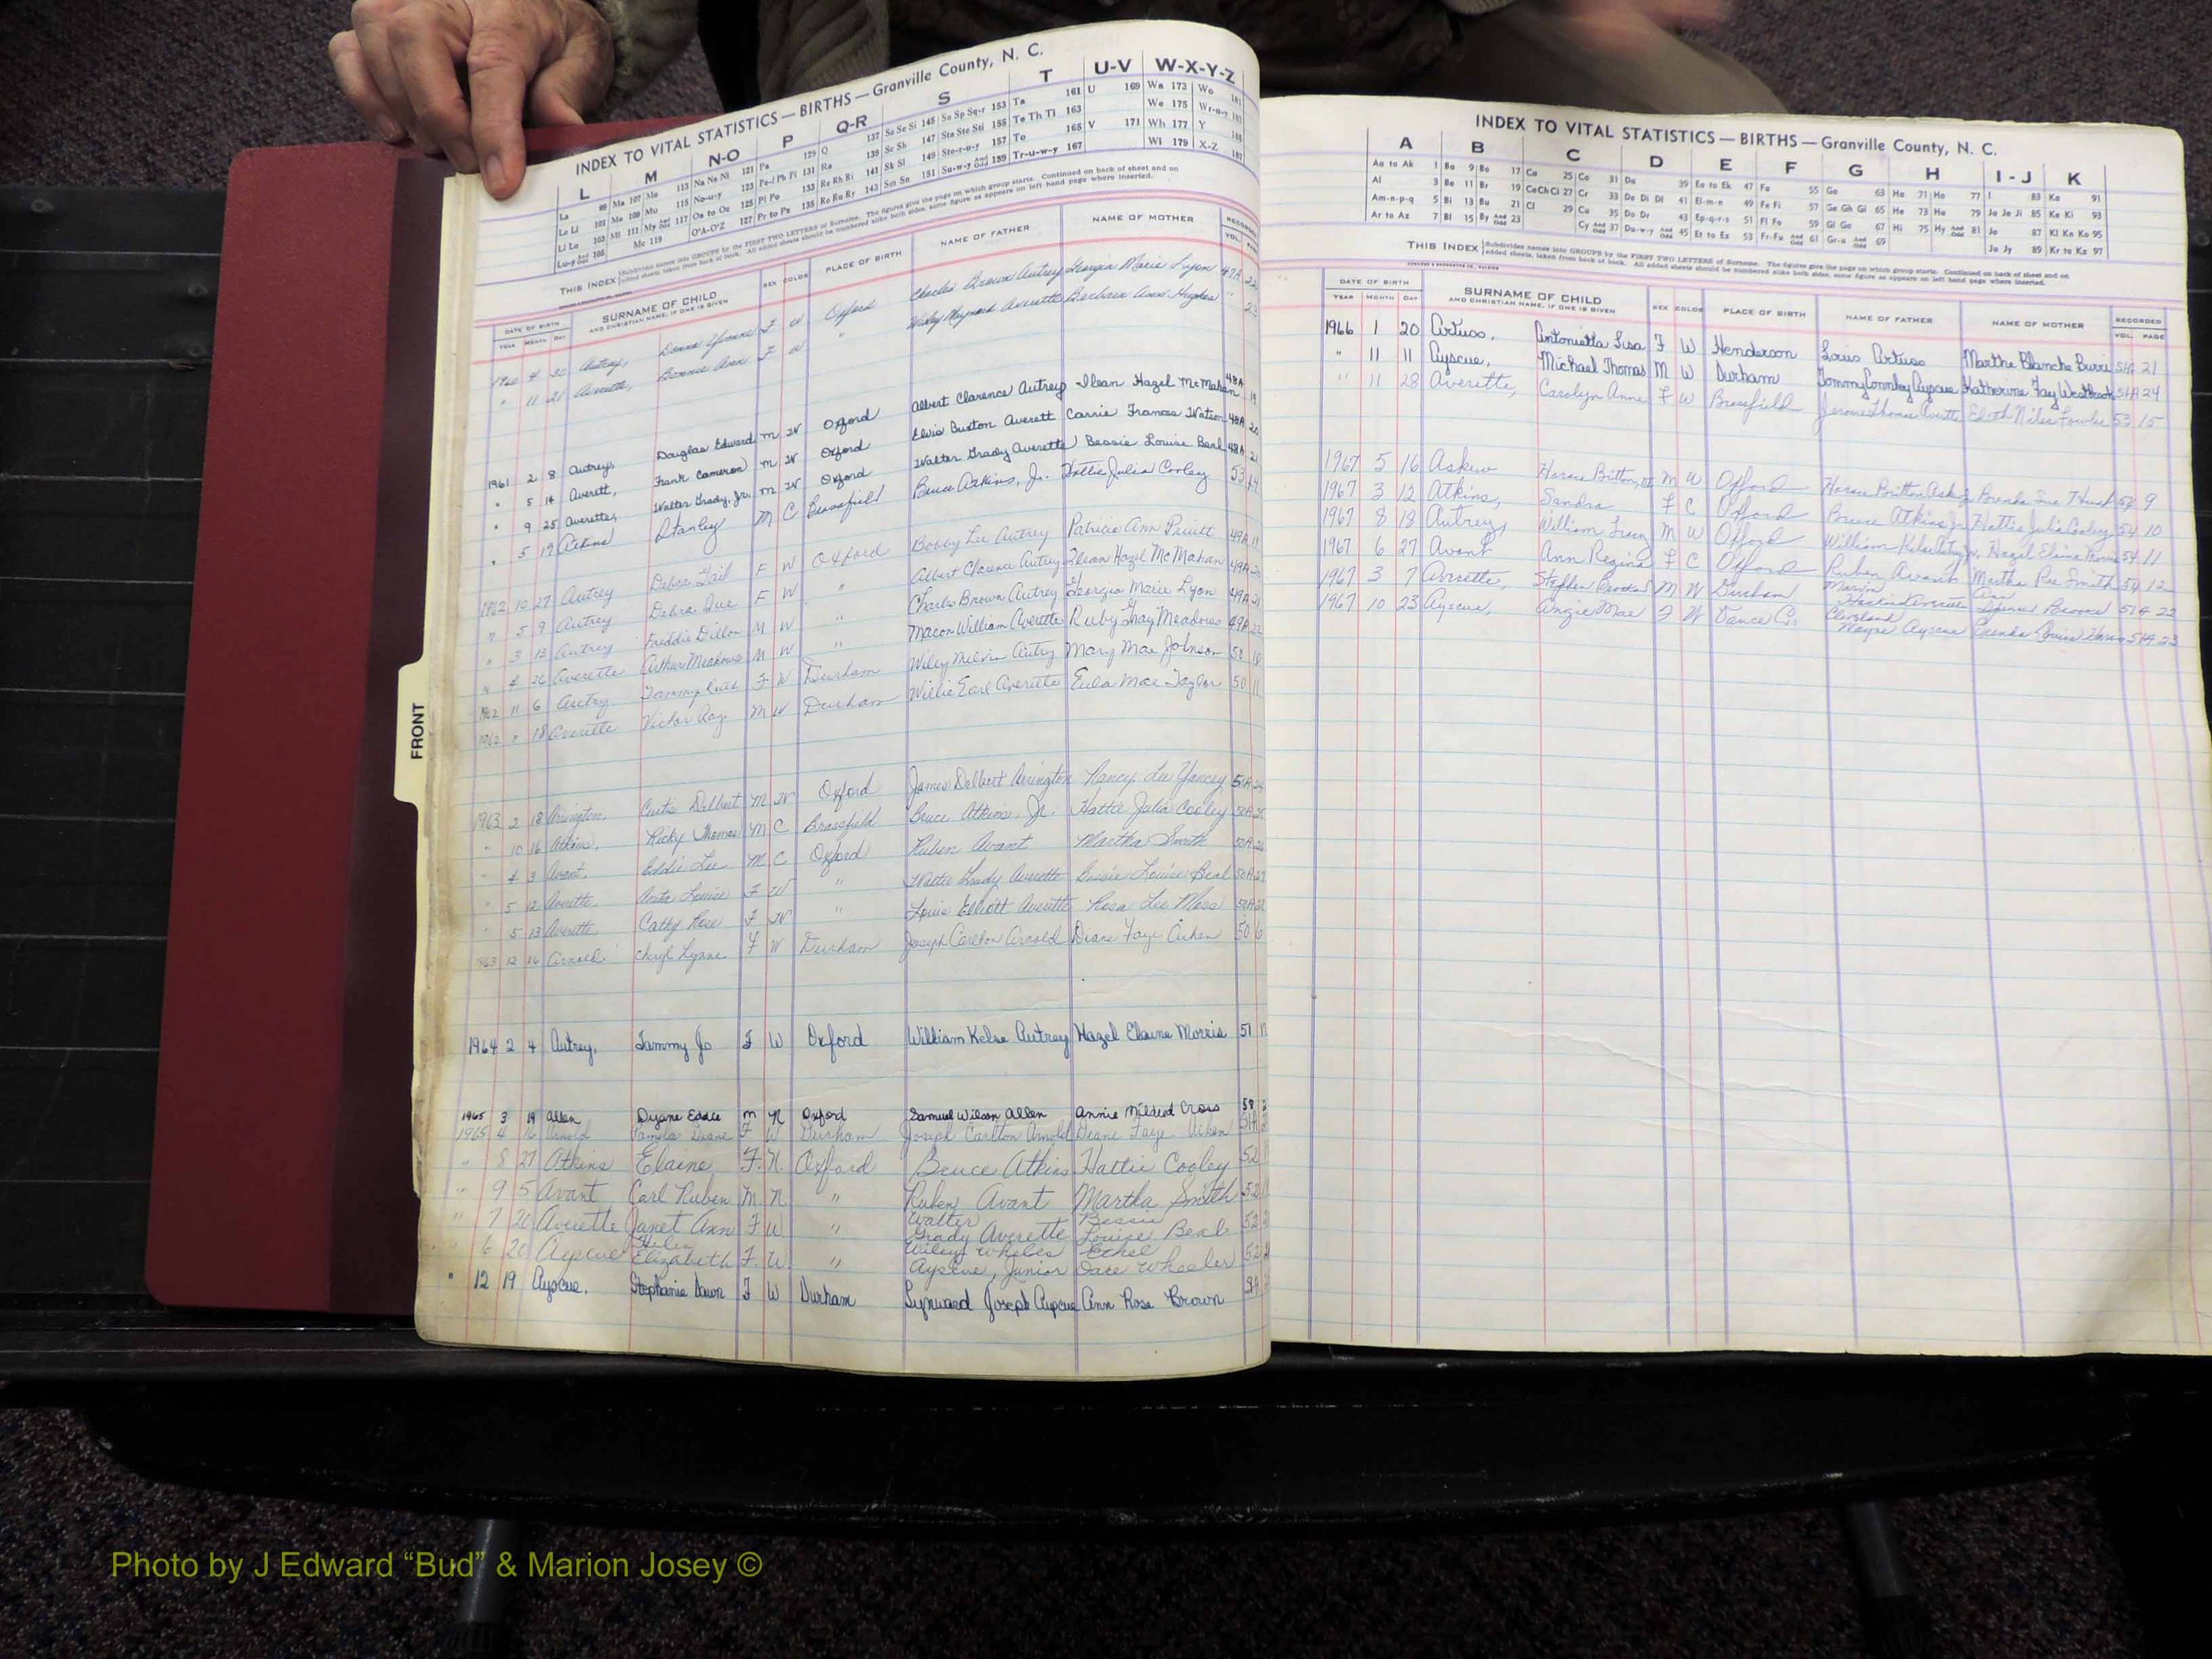 INDEX TO VITAL STATISTICS — BIRTHS — Granville County, N. C.
L M N-O P Q-R S T U-V W-X-Y-Z
La 99 Ma 107 Mo 113 Na Ne Ni 121 Pa 129 Q 137 Sa Sc Si 145 So Sp Sq-r 153 Ta 161 U 169 Wa 173 Wo
Le Li 101 Me 109 Mu 115 No-u-y 123 Pe-f Ph Pi 131 Ra 139 Se Sh 147 Sta Ste Sti 155 Te Th Ti 163 We 175 Wr-u-y
Ll Lo 103 Mi 111 My And Odd 117 Oa to Oz 125 Pl Po 133 Re Rh Ri 141 Sk Sl 149 Sto-r-u-y 157 To 165 V 171 Wh 177 Y
Lu-y And Odd 105 Mc 119 O'A-O'Z 127 Pr to Pz 135 Ro Ru Ry 143 Sm Sn 151 Su-w-y And Odd 159 Tr-u-w-y 167 Wi 179 X-Z
THIS INDEX Subdivides names into GROUPS by the FIRST TWO LETTERS of Surname. The figures give the page on which group starts. Continued on back of sheet and on
added sheets, taken from back of book. All added sheets should be numbered alike both sides, same figure as appears on left hand page where inserted.
DATE OF BIRTH SURNAME OF CHILD SEX COLOR PLACE OF BIRTH NAME OF FATHER NAME OF MOTHER RECORDED
YEAR MONTH DAY AND CHRISTIAN NAME, IF ONE IS GIVEN VOL.
1960 4 30 Autrey, Donna Yvonne F W Oxford Charles Brown Autrey Georgia Marie Lyon 47A 22
" 11 21 Averette, Bonnie Ann F W " Wiley Maynard Averette Barbara Ann Hughes " 23
1961 2 8 Autrey, Douglas Edward M W Oxford Albert Clarence Autrey Ilean Hazel McMahan 48A 19
" 5 14 Averett, Frank Cameron M W Oxford Elvis Buxton Averett Carrie Frances Watson 48A 20
" 9 25 Averette, Walter Grady, Jr. M W Oxford Walter Grady Averette Bessie Louise Beal 48A 21
" 5 19 Atkins Stanley M C Brassfield Bruce Atkins, Jr. Hattie Julia Cooley 53 14
1962 10 27 Autrey Debra Gail F W Oxford Bobby Lee Autrey Patricia Ann Pruitt 49A 19
" 5 9 Autrey Debra Sue F W " Albert Clarence Autrey Ilean Hazel McMahan 49A 20
" 3 13 Autrey Freddie Dillon M W " Charles Brown Autrey Georgia Marie Lyon 49A 21
" 4 26 Averette Arthur Meadows M W " Macon William Averette Ruby Gray Meadows 49A 22
1962 11 6 Autry Tammy Ruth F W Durham Wiley Melvin Autry Mary Mae Johnson 50 10
1962 " 18 Averette Victor Ray M W Durham Willie Earl Averette Eula Mae Taylor 50 11
1963 2 18 Arrington, Curtis Delbert M W Oxford James Delbert Arrington Nancy Lee Yancey 50A 24
" 10 16 Atkins, Ricky Thomas M C Brassfield Bruce Atkins, Jr. Hattie Julia Cooley 50A 25
" 4 3 Avant, Eddie Lee M C Oxford Ruben Avant Martha Smith 50A 26
" 5 12 Averette, Anita Louise F W " Walter Grady Averette Bessie Louise Beal 50A 27
" 5 13 Averette, Cathy Rose F W " Louis Elliott Averette Rosa Lee Moss 50A 28
1963 12 16 Arnold Cheryl Lynne F W Durham Joseph Carlton Arnold Diane Faye Aiken 50 6
1964 2 4 Autrey, Tammy Jo F W Oxford William Kelse Autrey Hazel Elaine Morris 51
1965 3 19 Allen Dyane Eddie M N Oxford Samuel Wilson Allen Annie Mildred Cross
1965 4 16 Arnold Pamela Diane F W Durham Joseph Carlton Arnold Diane Faye Aiken 51A
" 8 27 Atkins Elaine F. N. Oxford Bruce Atkins Hattie Cooley 52
" 9 5 Avant Carl Ruben M. N. " Ruben Avant Martha Smith 52
" 7 20 Averette Janet Ann F. W. " Walter Grady Averette Bessie Louise Beal 52
" 6 20 Ayscue Helen Elizabeth F. W. " Wiley Wheles Ayscue, Junior Ethel Dare Wheeler 52
" 12 19 Ayscue, Stephanie Dawn F W Durham Lynward Joseph Ayscue Ann Rose Brown
FRONT
INDEX TO VITAL STATISTICS — BIRTHS — Granville County, N. C.
A B C D E F G H I-J K
Aa to Ak 1 Ba 9 Bo 17 Ca 25 Co 31 Da 39 Ea to Ek 47 Fa 55 Ga 63 Ha 71 Ho 77 I 83 Ka 91
Al 3 Be 11 Br 19 Ce Ch Ci 27 Cr 33 De Di Dl 41 El-m-n 49 Fe Fi 57 Ge Gh Gi 65 He 73 Hu 79 Ja Je Ji 85 Ke Ki 93
Am-n-p-q 5 Bi 13 Bu 21 Cl 29 Cu 35 Do Dr 43 Ep-q-r-s 51 Fl Fo 59 Gl Go 67 Hi 75 Hy And Odd 81 Jo 87 Kl Kn Ko 95
Ar to Az 7 Bl 15 By And Odd 23 Cy And Odd 37 Du-w-y And Odd 45 Et to Ez 53 Fr-Fu And Odd 61 Gr-u And Odd 69 Ju Jy 89 Kr to Kz 97
THIS INDEX Subdivides names into GROUPS by the FIRST TWO LETTERS of Surname. The figures give the page on which group starts. Continued on back of sheet and on
added sheets, taken from back of book. All added sheets should be numbered alike both sides, same figure as appears on left hand page where inserted.
DATE OF BIRTH SURNAME OF CHILD SEX COLOR PLACE OF BIRTH NAME OF FATHER NAME OF MOTHER RECORDED
YEAR MONTH DAY AND CHRISTIAN NAME, IF ONE IS GIVEN VOL. PAGE
1966 1 20 Artuso, Antonietta Lisa F W Henderson Louis Artuso Martha Blanche Burri 51A 21
" 11 11 Ayscue, Michael Thomas M W Durham Tommy Connley Ayscue Katherine Fay Weatherly 51A 24
" 11 28 Averette, Carolyn Anne F W Brassfield Jerome Thomas Averette Edith Niles Fowler 53 15
1967 5 16 Askew Horace Britton, M W Oxford Horace Britton Askew Brenda Sue 54 9
1967 3 12 Atkins, Sandra F C Oxford Bruce Atkins Jr. Hattie Julia Cooley 54 10
1967 8 18 Autrey, William Tracy M W Oxford William Kelse Autry Jr. Hazel Elaine Morris 54 11
1967 6 27 Avant Ann Regina F C Oxford Ruben Avant Martha Ree Smith 54 12
1967 3 7 Averette, Stephen Brooks M W Durham Marvin Haskins Averette Ann Brooks 51A 22
1967 10 23 Ayscue, Angie Mae F W Vance Co. Cleveland Wayne Ayscue Brenda Louise 51A 23
Photo by J Edward “Bud” & Marion Josey ©